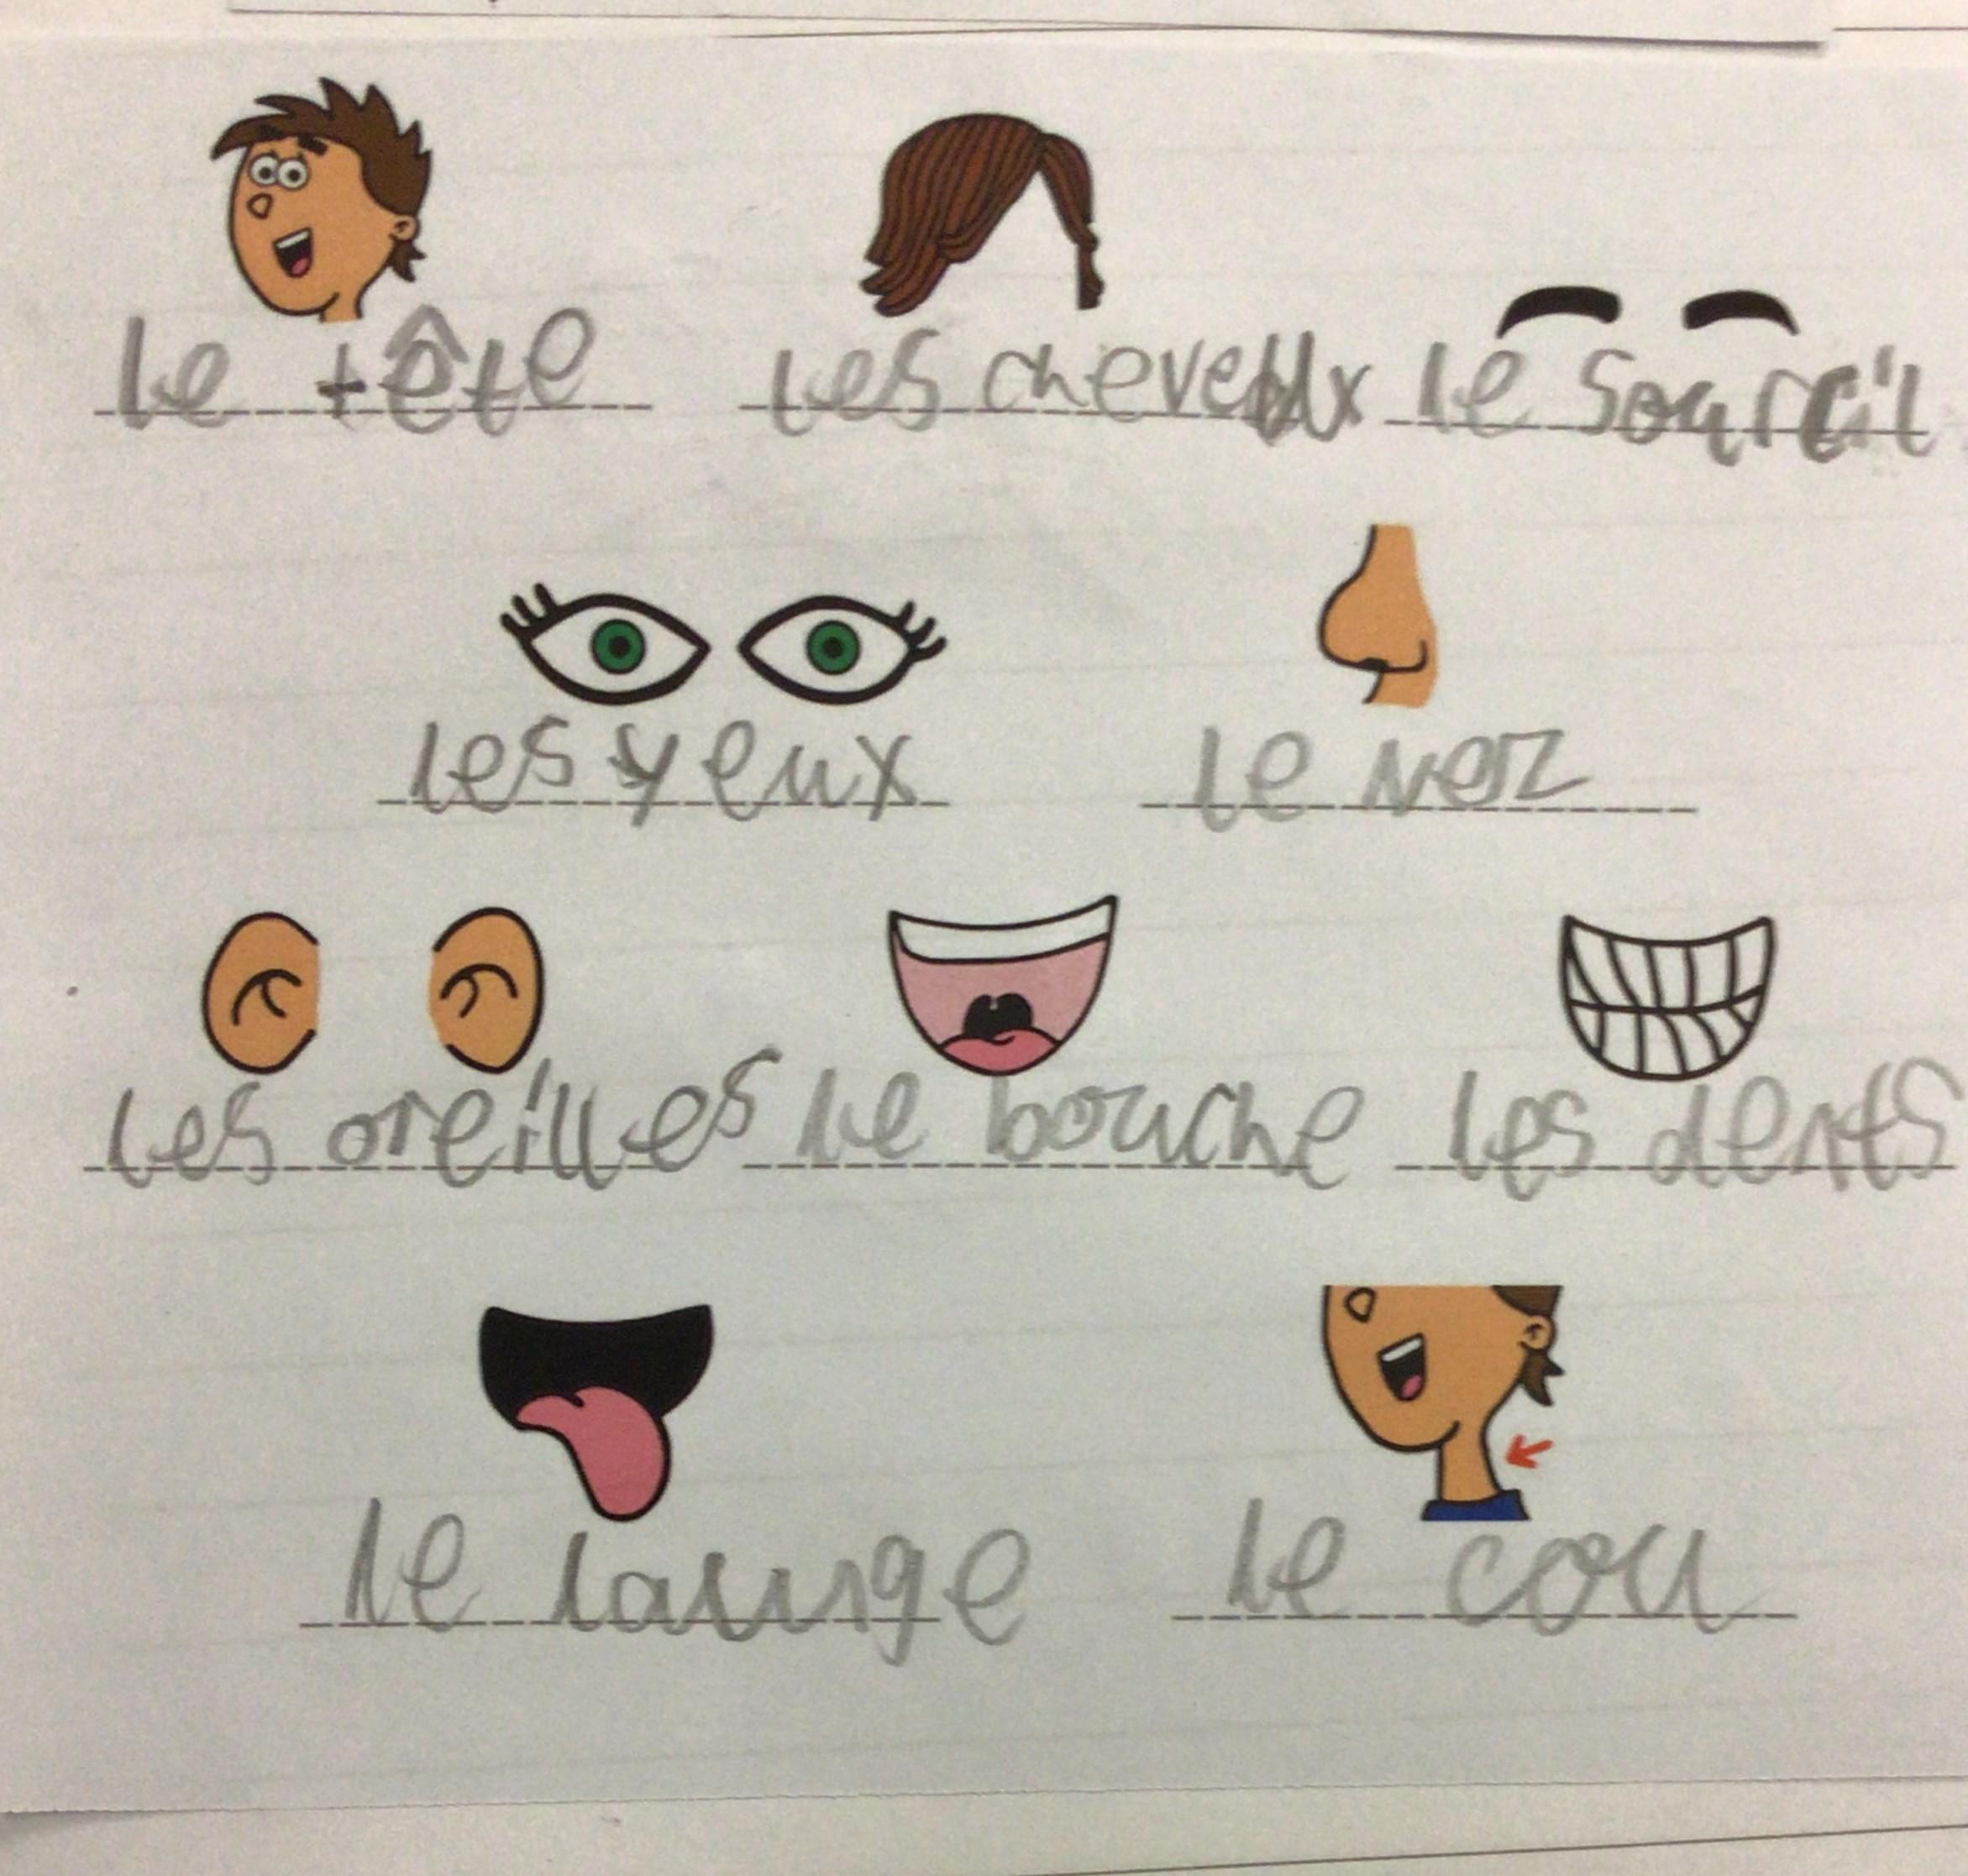 le tête les cheveux le sourcil
les yeux le nez
les oreilles le bouche les dents
le launge le cou